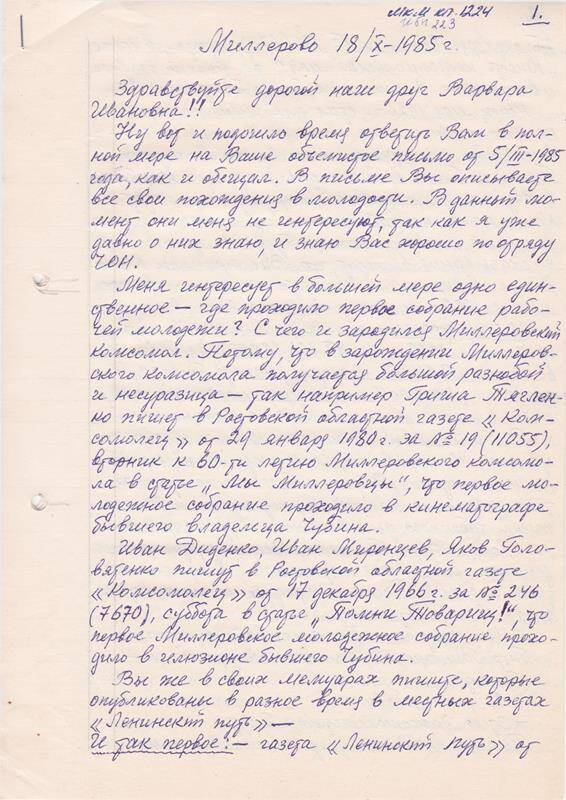 МКМ КП-1224
1.
Миллерово 18/X-1985 г.
Здравствуйте дорогой наш друг Варвара
Ивановна!!
Ну вот и подошло время ответить Вам в пол-
ной мере на Ваше объемистое письмо от 5/III-1985
года, как и обещал. В письме Вы описываете
все свои похождения в молодости. В данный мо-
мент они меня не интересуют, так как я уже
давно о них знаю, и знаю Вас хорошо по отряду
ЧОН.
Меня интересует в большей мере одно един-
ственное — где проходило первое собрание рабо-
чей молодежи? С чего и зародился Миллеровский
комсомол. Потому, что в зарождении Миллеров-
ского комсомола получается большой разнобой
и несуразица — так например Гриша Тяглен-
ко пишет в Ростовской областной газете «Ком-
сомолец» от 29 января 1980 г. за № 19 (11055),
вторник к 60-ти летию Миллеровского комсомо-
ла в статье „Мы Миллеровцы", что первое мо-
лодежное собрание проходило в кинематографе
бывшего владельца Чубина.
Иван Диденко, Иван Миронцев, Яков Голо-
вятенко пишут в Ростовской областной газете
«Комсомолец» от 17 декабря 1966 г. за № 246
(7670), суббота в статье „Помни Товарищ!", что
первое Миллеровское молодежное собрание прохо-
дило в иелюзионе бывшего Чубина.
Вы же в своих мемуарах пишите, которые
опубликованы в разное время в местных газетах
«Ленинский путь» —
И так первое: — газета «Ленинский путь» от